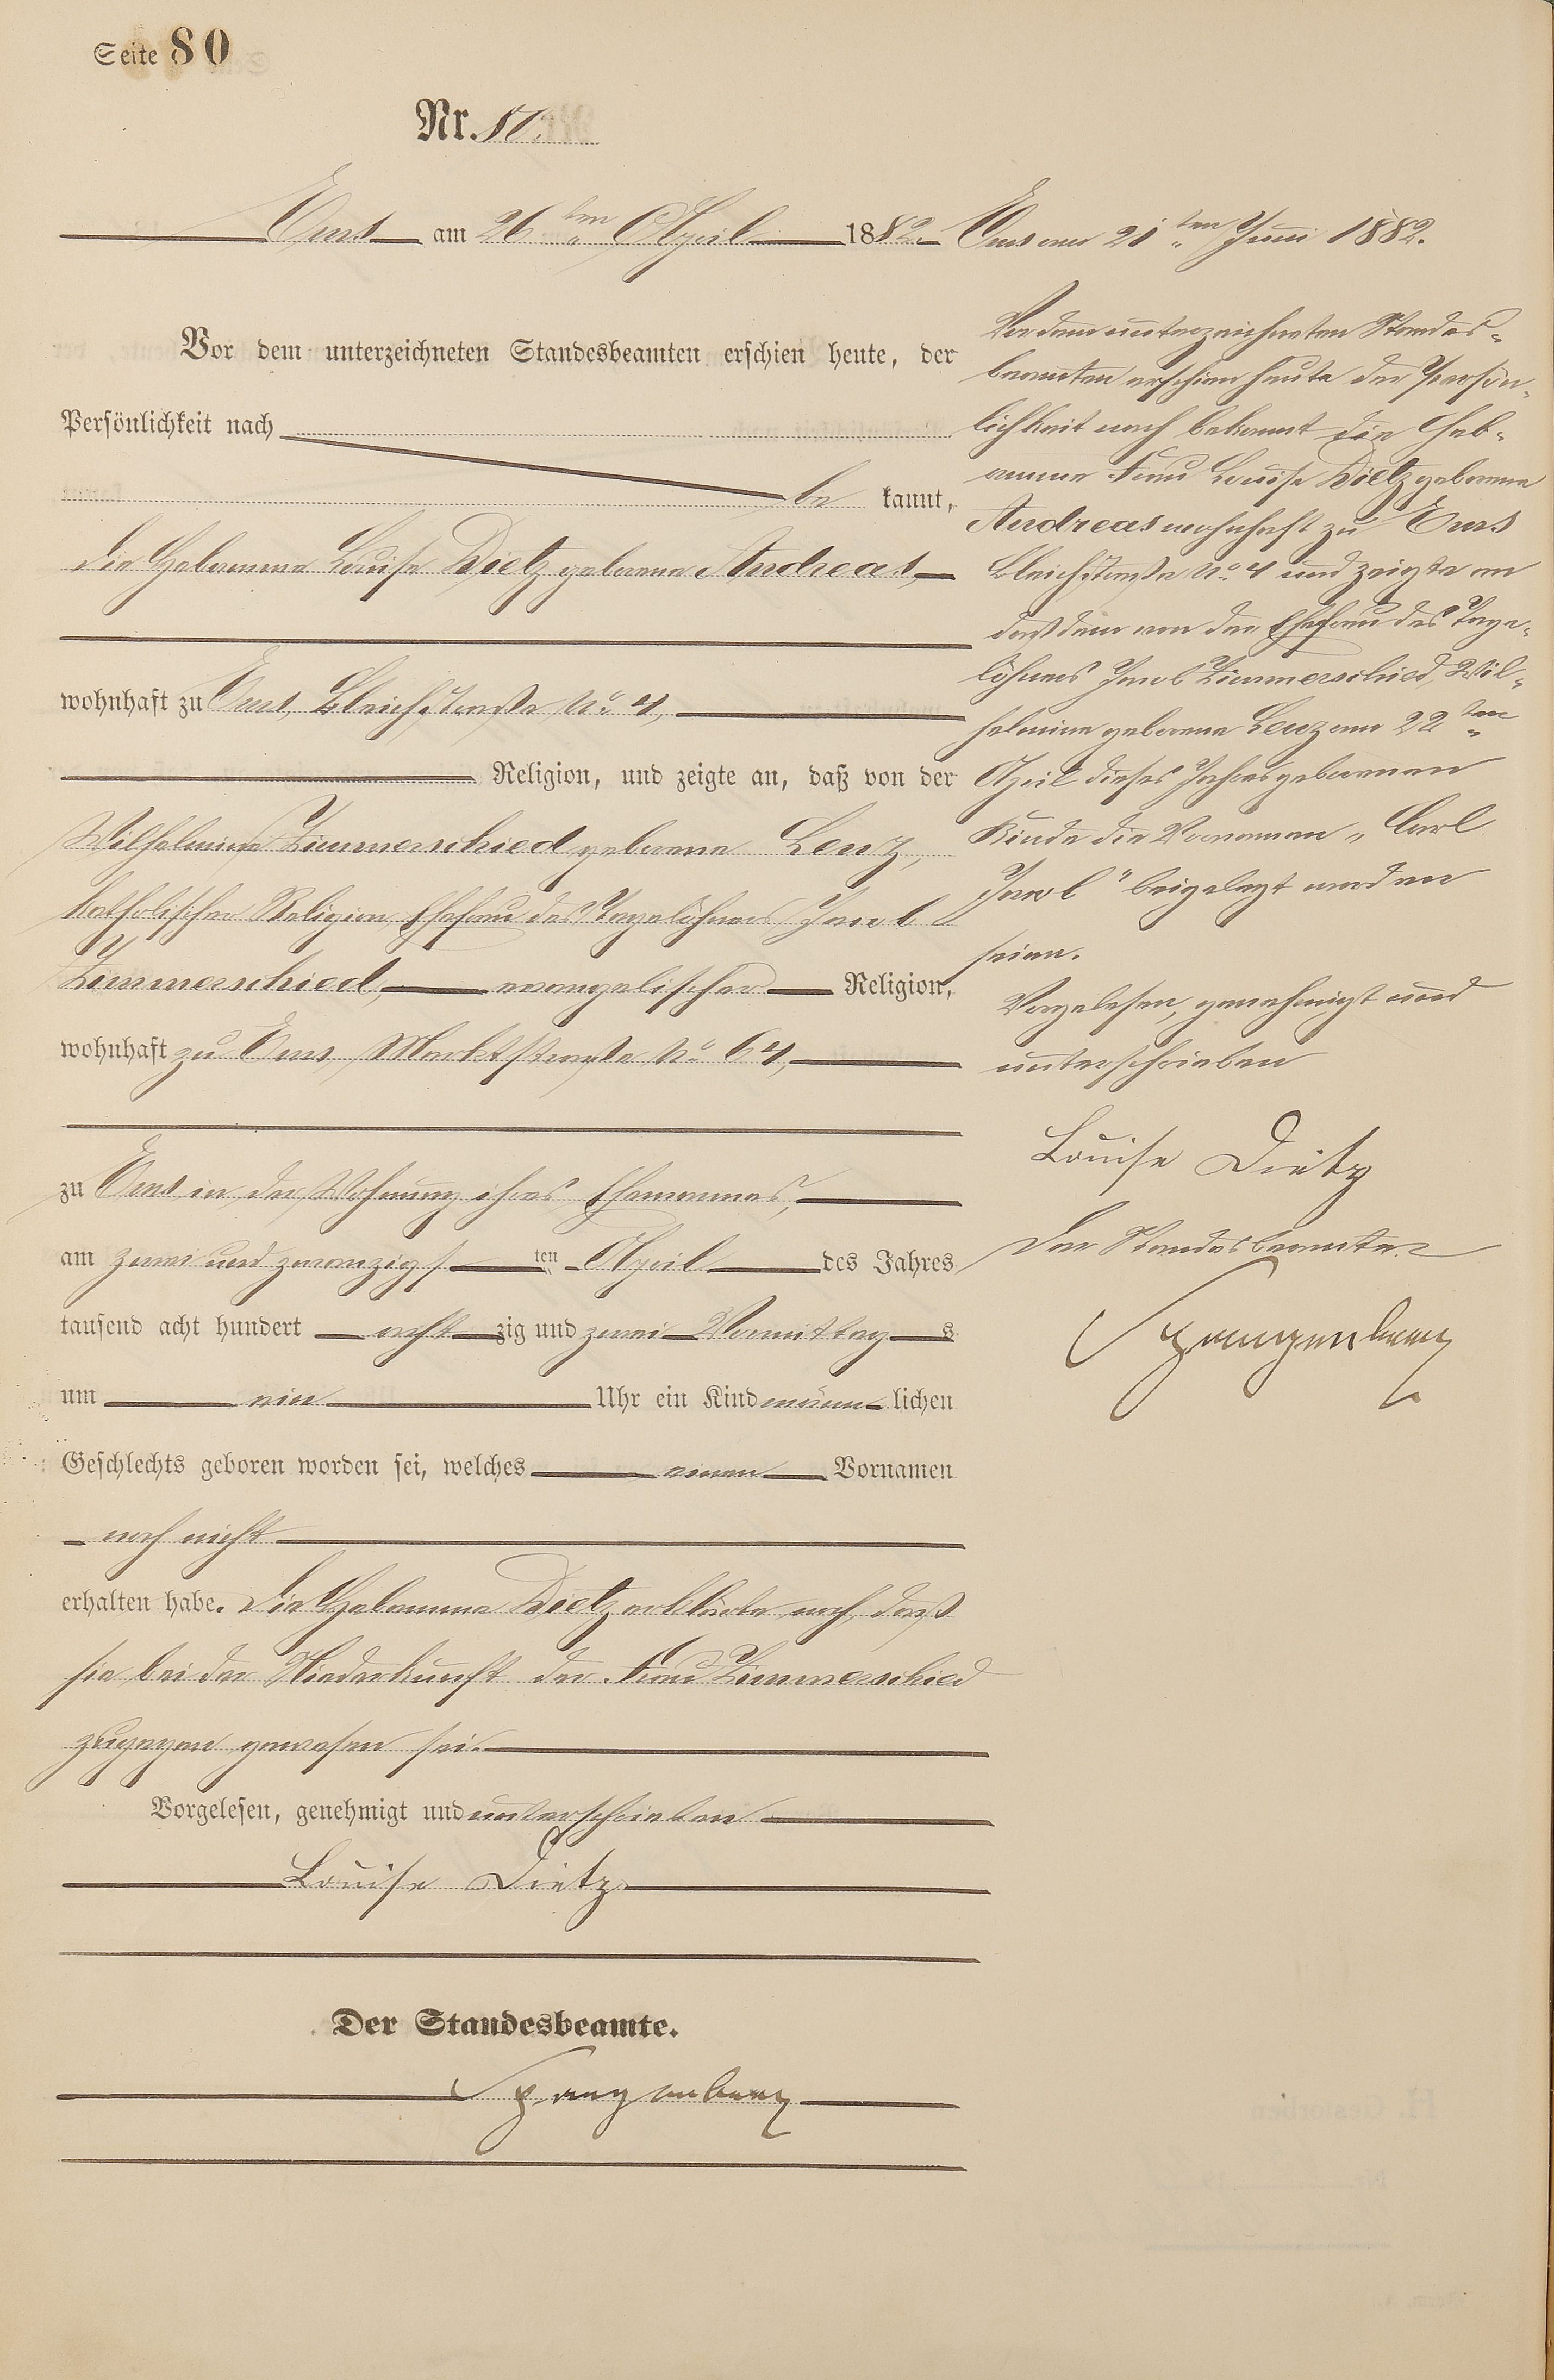 Seite 80
Nr. 80.
Ems am 26ten April 1882.
Vor dem unterzeichneten Standesbeamten erschien heute, der
Persönlichkeit nach
be kannt,
die Hebamme Louise Dietz geborene Andreas,
wohnhaft zu Ems, Bleichstraße No. 4,
Religion, und zeigte an, daß von der
Wilhelmine Zimmerschied geborene Lenz,
katholischer Religion, Ehefrau des Tagelöhners Jacob
Zimmerschied, evangelischer Religion,
wohnhaft zu Ems, Marktstraße No. 64,
zu Ems in der Wohnung ihres Ehemannes,
am zwei und zwanzigsten April des Jahres
tausend acht hundert achtzig und zwei Vormittags
um ein Uhr ein Kind männlichen
Geschlechts geboren worden sei, welches einen Vornamen
noch nicht
erhalten habe. Die Hebamme Dietz erklärte noch, daß
sie bei der Niederkunft der Frau Zimmerschied
zugegen gewesen sei.
Vorgelesen, genehmigt und unterschrieben
Louise Dietz
Der Standesbeamte.
Spangenberg
Ems am 21ten Juni 1882.
Vor dem unterzeichneten Standes-
beamten erschien heute der Persön-
lichkeit nach bekannt die Heb-
amme Frau Louise Dietz geborene
Andreas wohnhaft zu Ems
Bleichstraße No. 4 und zeigte an
daß dem von der Ehefrau des Tage-
löhners Jacob Zimmerschied, Wil-
helmine geborene Lenz am 22ten
April dieses Jahres geborenen
Kinde die Vornamen "Carl
Jacob" beigelegt worden
seien.
Vorgelesen, genehmigt und
unterschrieben
Louise Dietz
Der Standesbeamte
Spangenberg